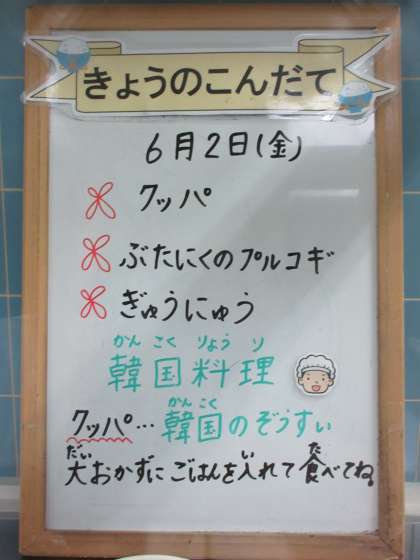 きょうのこんだて
6月2日(金)
クッパ
ぶたにくのプルコギ
ぎゅうにゅう
かんこくりょうり
韓国料理
かんこく
クッパ…韓国のぞうすい
だい い た
大おかずにごはんを入れて食べてね。